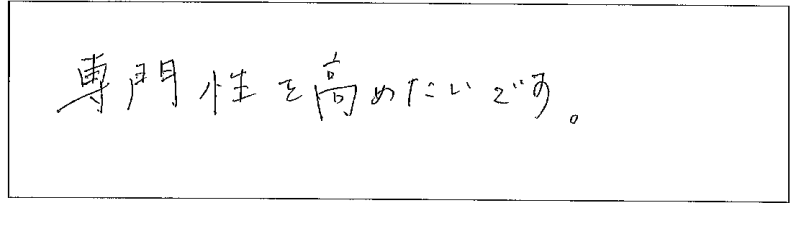 専門性を高めたいです。